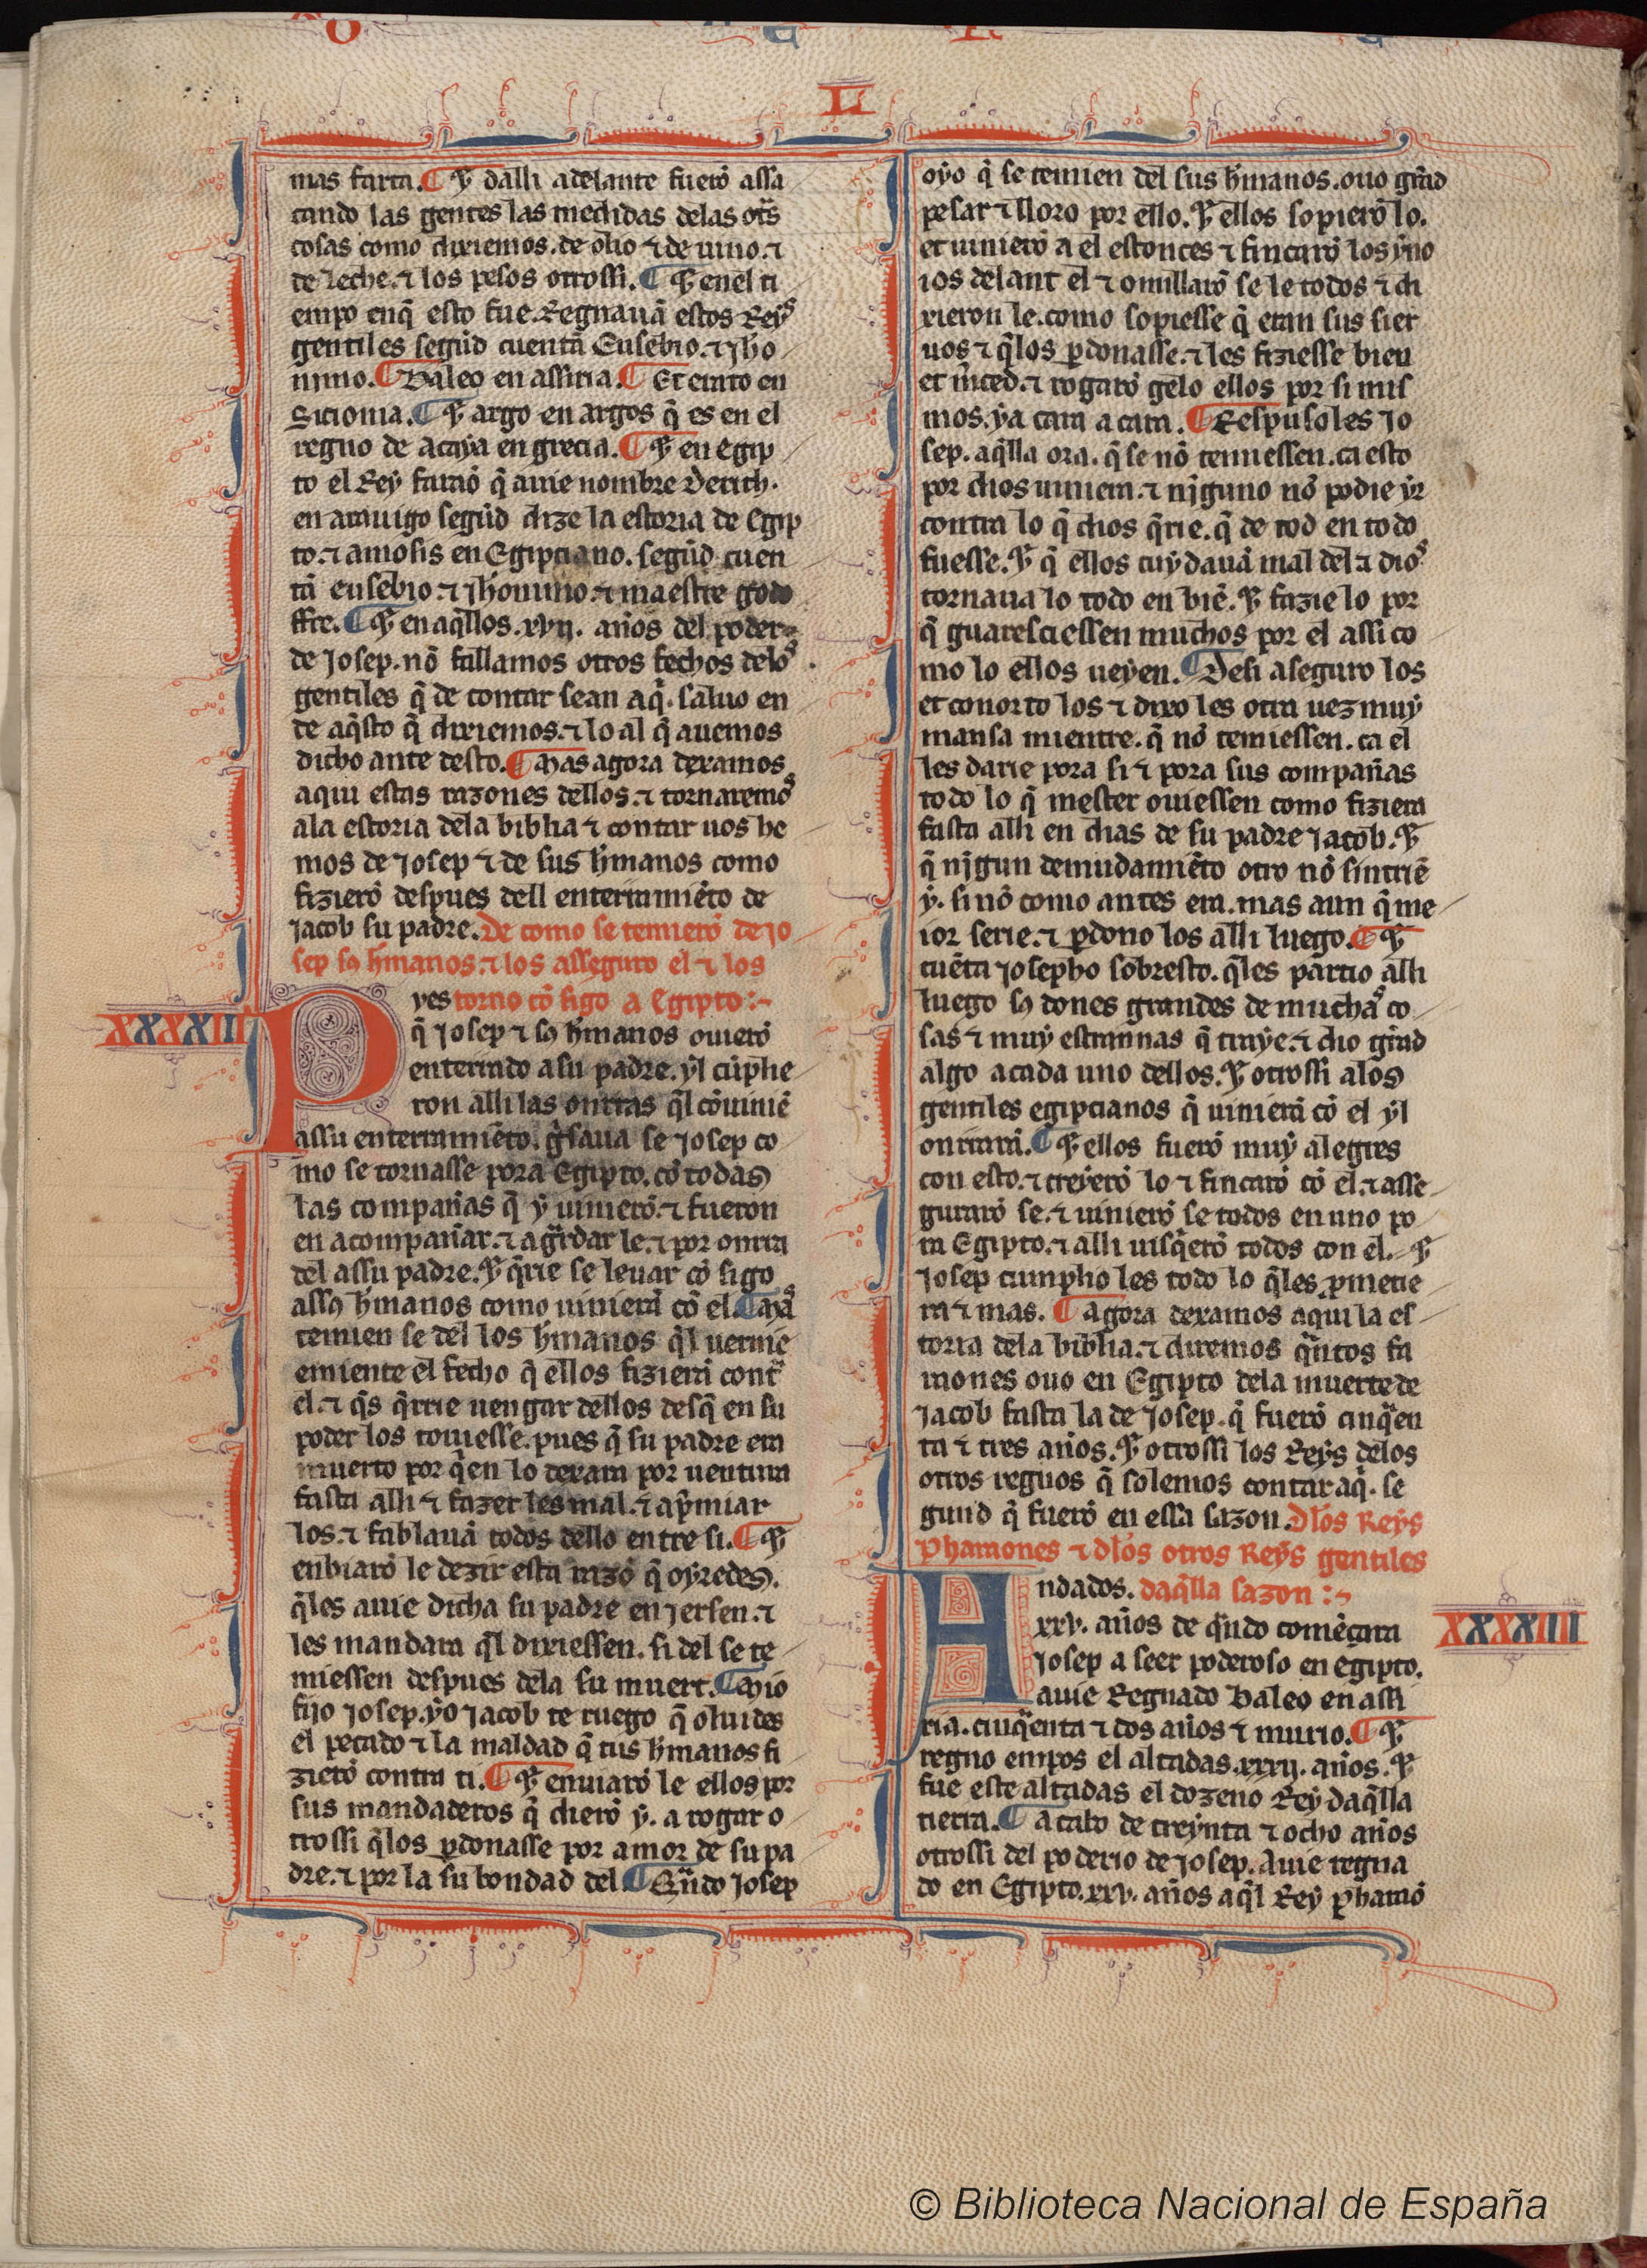 L
mas farta. ¶ ⁊ dalli adelante fuerõ assa
cando las gentes las medidas delas otͣs
cosas como dixiemos. de olio ⁊ de uino. ⁊
de leche. ⁊ los pesos otrossi. ¶ ⁊ enel ti
empo enq̃ esto fue. Regnauã estos Reyˢ
gentiles segũd cuentã Eusebio. ⁊ jħo
nimo. ¶ Baleo en assiria. ¶ Et en
Sicionia. ¶ ⁊ argo en argos q̃ es en el
regno de acaya en grecia. ¶ ⁊ en egip
to el Rey faraõ q̃ auie nombre
en arauigo segũd dize la estoria de Egip
to. ⁊ amosis en Egipciano. segũd cuen
tã eusebio. ⁊ jħonimo. ⁊ maestre godo
ffre. ¶ ⁊ en aq̃llos. xvij. años del poder
de Josep. nõ fallamos otros fechos deloˢ
gentiles q̃ de contar sean aq̃. saluo en
de aq̃sto q̃ dixiemos. ⁊ lo al q̃ auemos
dicho ante desto. ¶ Mas agora dexamos
aqui estas razones dellos. ⁊ tornaremoˢ
ala estoria dela biblia ⁊ contar uos he
mos de Josep ⁊ de sus ħmanos como
fizierõ despues dell enterramiẽto de
Jacob su padre. De como se temierõ de jo
sep sꝯ ħmanos. ⁊ los asseguro el ⁊ los
ves torno cõ sigo a Egipto :~
XXXXIII
P
q̃ Josep ⁊ sꝯ ħmanos ouierõ
enterrado a su padre. yl cũplie
ron alli las onrras q̃l cõuiniẽ
assu enterramiẽto. g̃saua se Josep co
mo se tornasse pora Egipto. cõ todas
las compañas q̃ y uinierõ. ⁊ fueron
en acompañar. ⁊ agͣrdar le. ⁊ por onrra
del assu padre. ⁊ q̃rie se leuar cõ sigo
assꝯ ħmanos como uinierã cõ el. ¶ Maˢ
temien se del los ħmanos q̃l uernie
emiente el fecho q̃ ellos fizierã contͣ
el. ⁊ q̃s q̃rrie uengar dellos desq̃ en su
poder los touiesse. pues q̃ su padre era
muerto por q̃en lo dexara por uentura
fasta alli ⁊ fazer les mal. ⁊ ap̃miar
los. ⁊ fablauã todos dello entre si. ¶ ⁊
enbiarõ le dezir esta razõ q̃ oyredes.
q̃les auie dicha su padre en jersen. ⁊
les mandara q̃l dixiessen. si del se te
miessen despues dela su muert. ¶ Mio
fijo Josep. yo Jacob te ruego q̃ oluides
el pecado ⁊ la maldad q̃ tus ħmanos fi
zierõ contra ti. ¶ ⁊ enuiarõ le ellos por
sus mandaderos q̃ dierõ y. a rogar o
trossi q̃los ꝑdonasse por amor de su pa
dre. ⁊ por la su bondad del. ¶ Qͣndo Josep
oyo q̃ se temien del sus ħmanos. ouo grãd
pesar ⁊ lloro por ello. ⁊ ellos sopierõ lo.
et uinierõ a el estonces ⁊ fincarõ los yno
ios delant el ⁊ omillarõ se le todos ⁊ di
xieron le. como sopiesse q̃ eran sus sier
uos ⁊ q̃los ꝑdonasse. ⁊ les fiziesse bien
et m̃ced. ⁊ rogarõ gelo ellos por si mis
mos. ya cara a cara. ¶ Respusoles Jo
sep. aq̃lla ora. q̃ se nõ temiessen. ca esto
por dios uiniera. ⁊ nj̃guno nõ podie yr
contra lo q̃ dios q̃rie. q̃ de tod en todo
fuesse. ⁊ q̃ ellos cuydauã mal del ⁊ dioˢ
tornaua lo todo en biẽ. ⁊ fazie lo por
q̃ guaresciessen muchos por el assi co
mo lo ellos ueyen. ¶ Desi aseguro los
et conorto los ⁊ dixo les otra uez muy
mansa mientre. q̃ nõ temiessen. ca el
les darie pora si ⁊ pora sus compañas
todo lo q̃ mester ouiessen como fiziera
fasta alli en dias de su padre Jacob. ⁊
q̃ nj̃gun demudamiẽto otro nõ sintriẽ
y. si nõ como antes era. mas aun q̃ me
ior serie. ⁊ ꝑdono los alli luego. ¶ ⁊
cuẽta Josepho sobresto. q̃les partio alli
luego sꝯ dones grandes de muchaˢ co
sas ⁊ muy estrannas q̃ traye. ⁊ dio grãd
algo acada uno dellos. ⁊ otrossi alos
gentiles egipcianos q̃ uinierã cõ el yl
onrrarã. ¶ ⁊ ellos fuerõ muy alegres
con esto. ⁊ creyerõ lo ⁊ fincarõ cõ el. ⁊ asse
gurarõ se. ⁊ uinierõ se todos en uno po
ra Egipto. ⁊ alli uisq̃erõ todos con el. ⁊
Josep cumplio les todo lo q̃les ꝓmetie
ra ⁊ mas. ¶ Agora dexamos aqui la es
toria dela biblia. ⁊ diremos qͣntos fa
raones ouo en Egipto dela muerte de
Jacob fasta la de Josep. q̃ fuerõ cinqͣen
ta ⁊ tres años. ⁊ otrossi los Reys delos
otros regnos q̃ solemos contar aq̃. se
gund q̃ fuerõ en essa sazon. Dlos Reys
Pharaones ⁊ dlos otros Reys gentiles
ndados. daq̃lla sazon :~
A
XXXXIIII
xxv. años de qͣndo comẽçara
Josep a seer poderoso en egipto.
auie Regnado Baleo en assi
ria. cinqͣenta ⁊ dos años ⁊ murio. ¶ ⁊
regno empos el altadas. xxxij. años. ⁊
fue este altadas el dozeno Rey daq̃lla
tierra. ¶ A cabo de treynta ⁊ ocho años
otrossi del poderio de Josep. auie regna
do en Egipto. xxv. años aq̃l Rey pharaõ
© Biblioteca Nacional de España